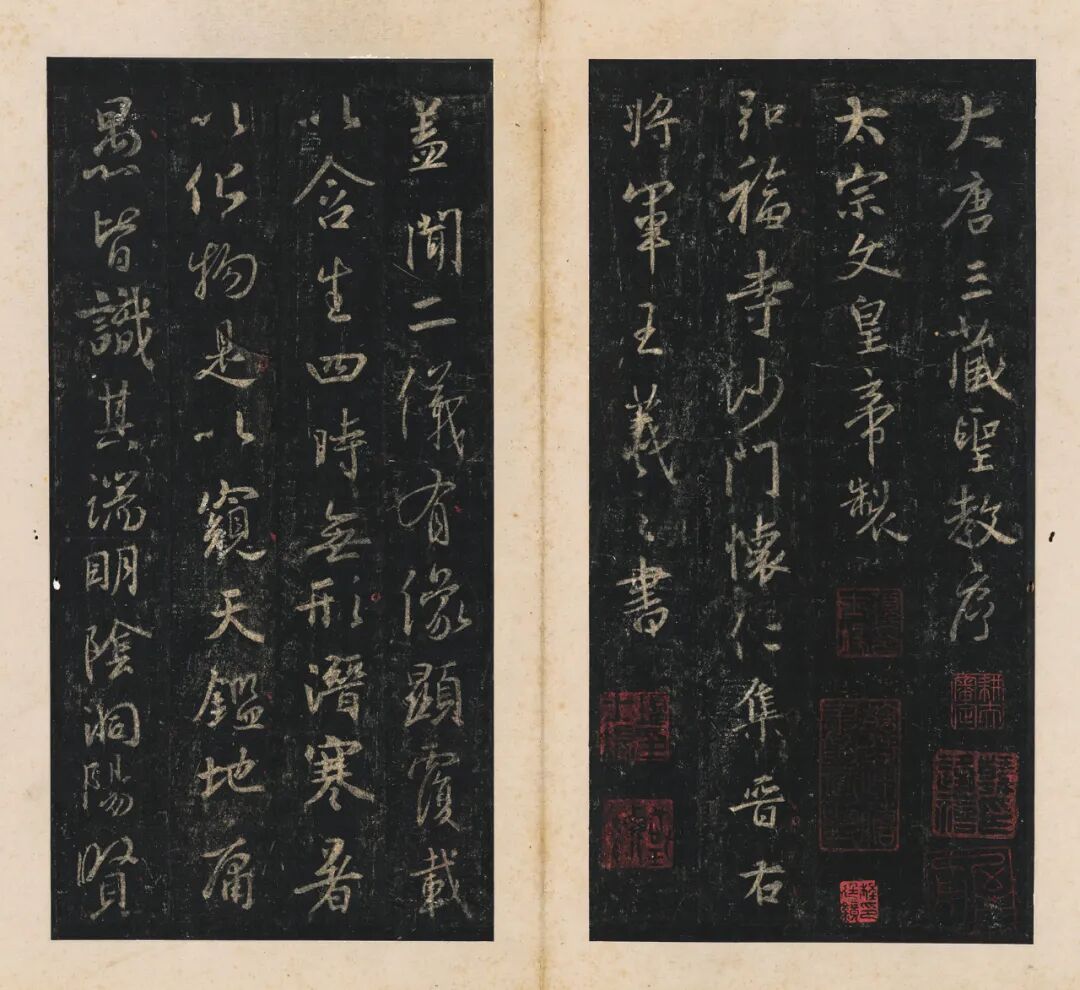 大唐三藏聖教序
太宗文皇帝製
弘福寺沙門懷仁集晉右
將軍王羲之書
蓋聞二儀有像顯覆載
以含生四時無形潛寒暑
以化物是以窺天鑑地庸
愚皆識其端明陰洞陽賢